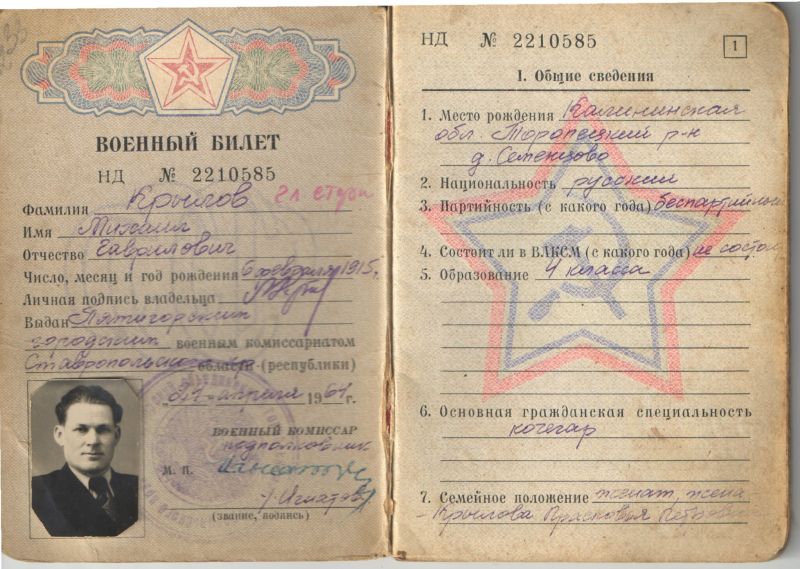 ВОЕННЫЙ БИЛЕТ
НД № 2210585
Фамилия Крылов
Имя Михаил
Отчество Гаврилович
Число, месяц и год рождения 6 февраля 1915г.
Личная подпись владельца
Выдан Пятигорским
городским военным комиссариатом
Ставропольского области (республики)
апреля 1961 г.
ВОЕННЫЙ КОМИССАР
подполковник
М. П.
Игнатов
(звание, подпись)
НД № 2210585
1
I. Общие сведения
1. Место рождения Калининская
обл. Торопецкий р-н
д. Семенцово
2. Национальность русский
3. Партийность (с какого года) беспартийный
4. Состоит ли в ВЛКСМ (с какого года) не состоял
5. Образование 4 класса
6. Основная гражданская специальность
кочегар
7. Семейное положение женат, жена
- Крылова Прасковья Петровна